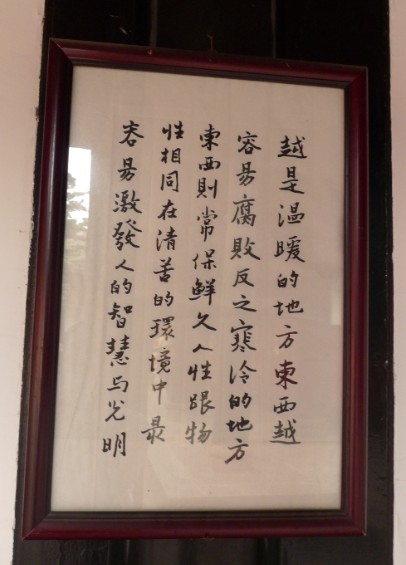 越是温暖的地方東西越
容易腐敗反之寒冷的地方
東西則常保鮮久人性跟物
性相同在清苦的環境中最
容易激發人的智慧与光明